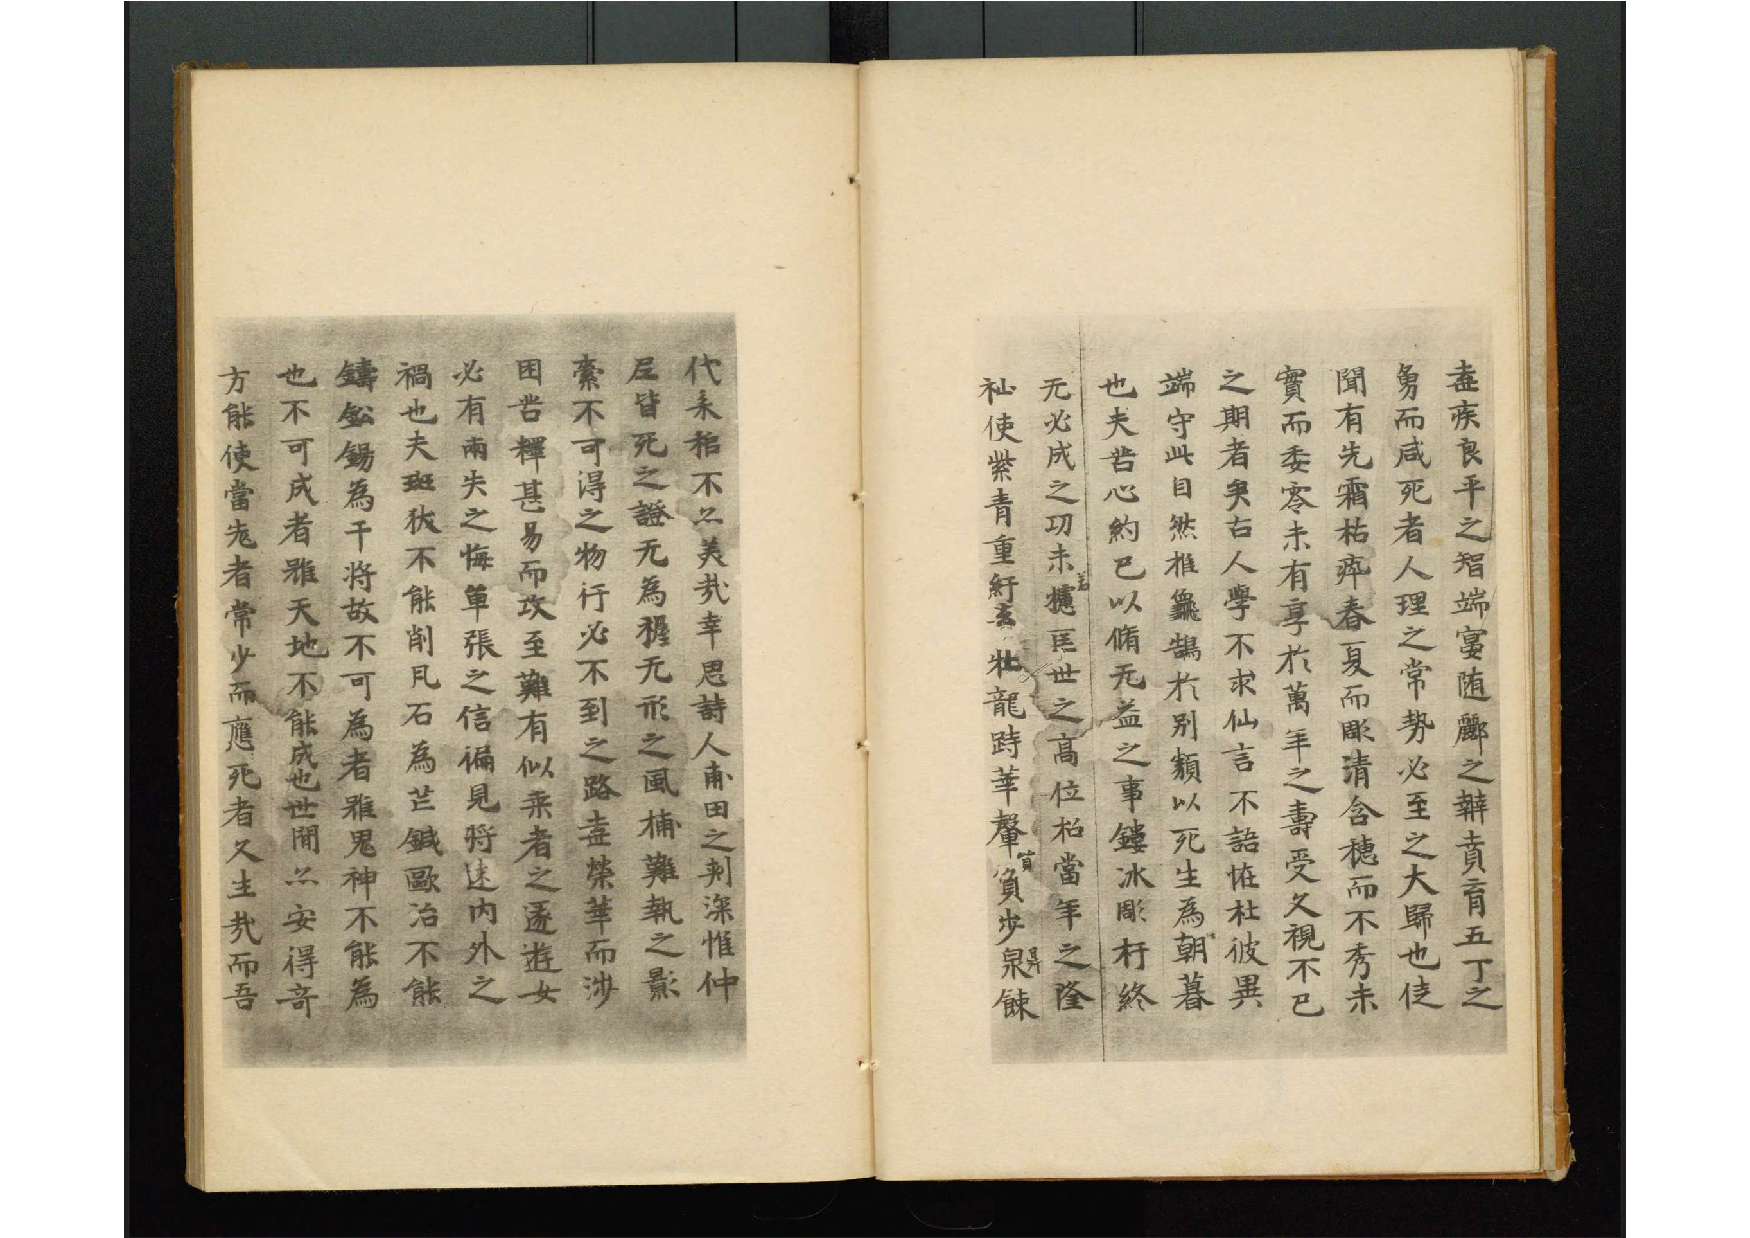 盡疾良平之智端宴随酈之辯賁育五丁之
勇而咸死者人理之常勢必至之大歸也徒
聞有先霜枯瘁春夏而彫清含穗而不秀未
實而委零未有享於萬年之壽受久視不已
之期者矣古人學不求仙言不語恠杜彼異
端守此自然推龜鵠於別類以死生為朝暮
也夫苦心約己以脩无益之事鏤冰彫朽終
无必成之功未攄匡世之高位柗當年之隆
祉使紫青重紆玄牡龍跱華轂負步泉餗
代耒耜不亦美哉幸思詩人甫田之刺深惟仲
尼皆死之證无為握无形之風捕難執之影
索不可得之物行必不到之路弃榮華而涉
困苦釋甚易而攻至難有似乘者之逐遊女
必有兩失之悔單張之信徧見将速内外之
禍也夫班狄不能削凡石為芒鍼歐冶不能
鑄鈆錫為干将故不可為者雖鬼神不能為
也不可成者雖天地不能成也世間亦安得奇
方能使當老者常少而應死者久生哉而吾